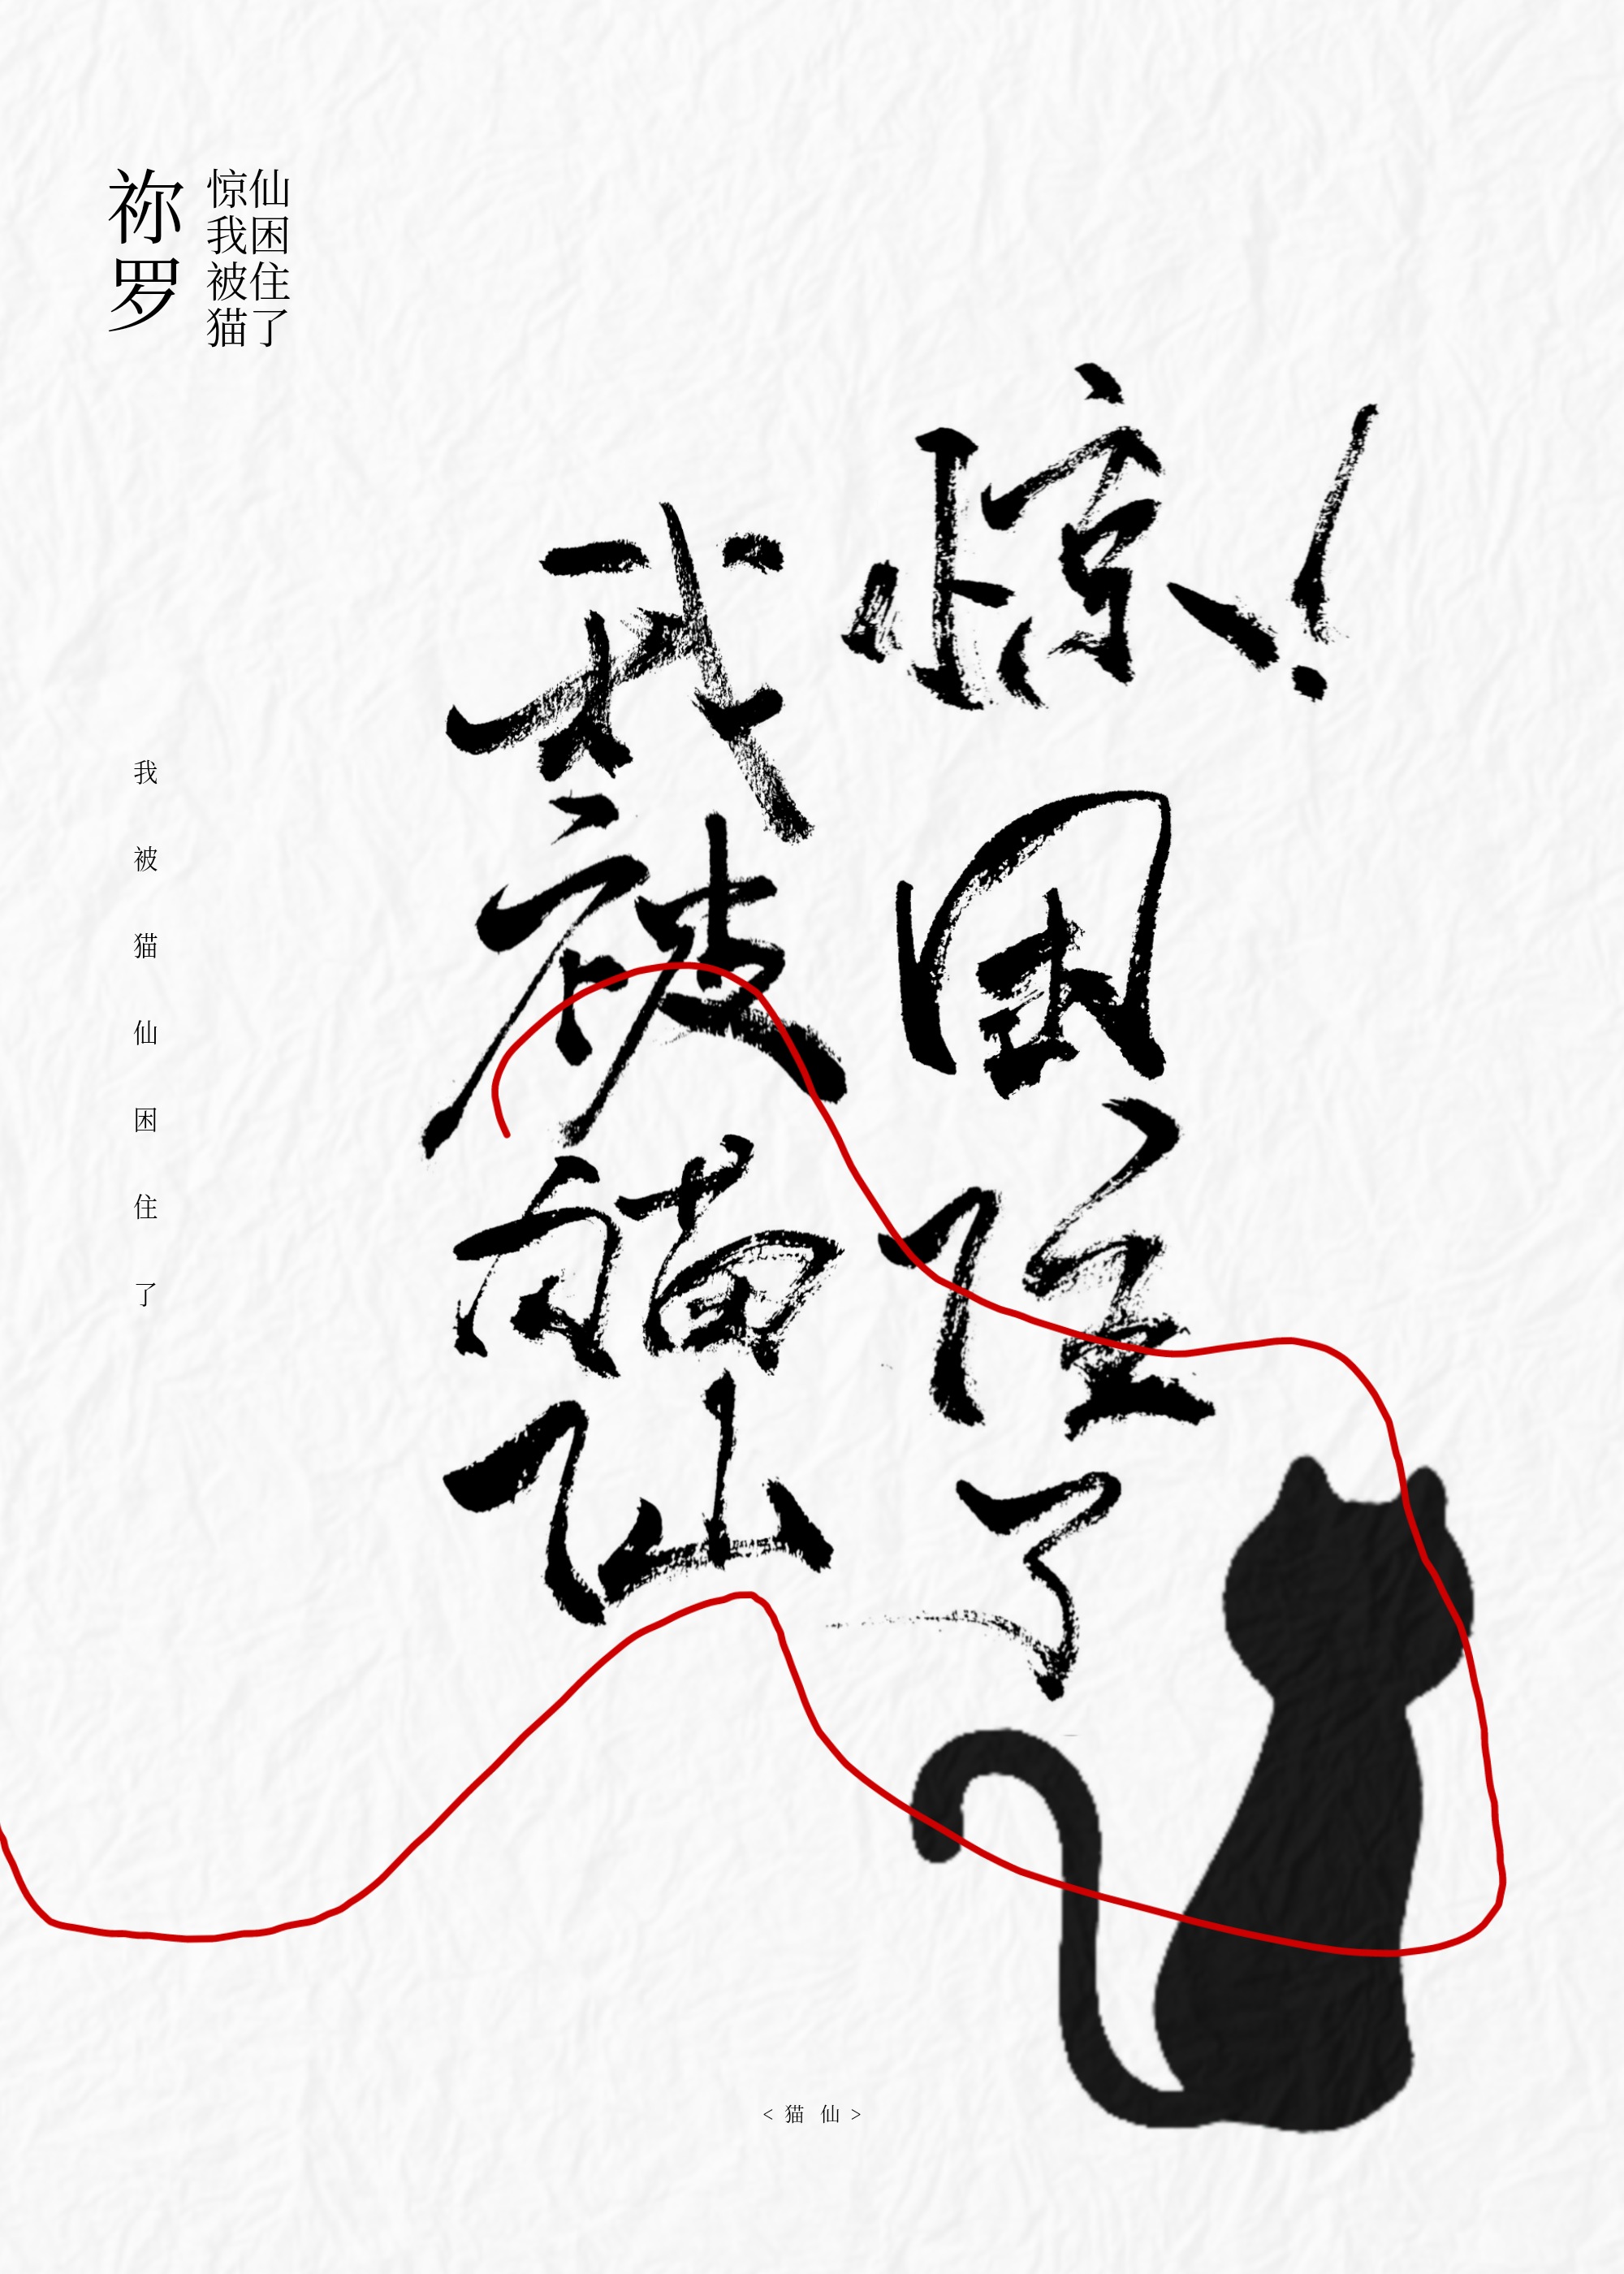 祢罗
惊我被猫
仙困住了
惊！
我被猫仙
困住了
我被猫仙困住了
<猫 仙>